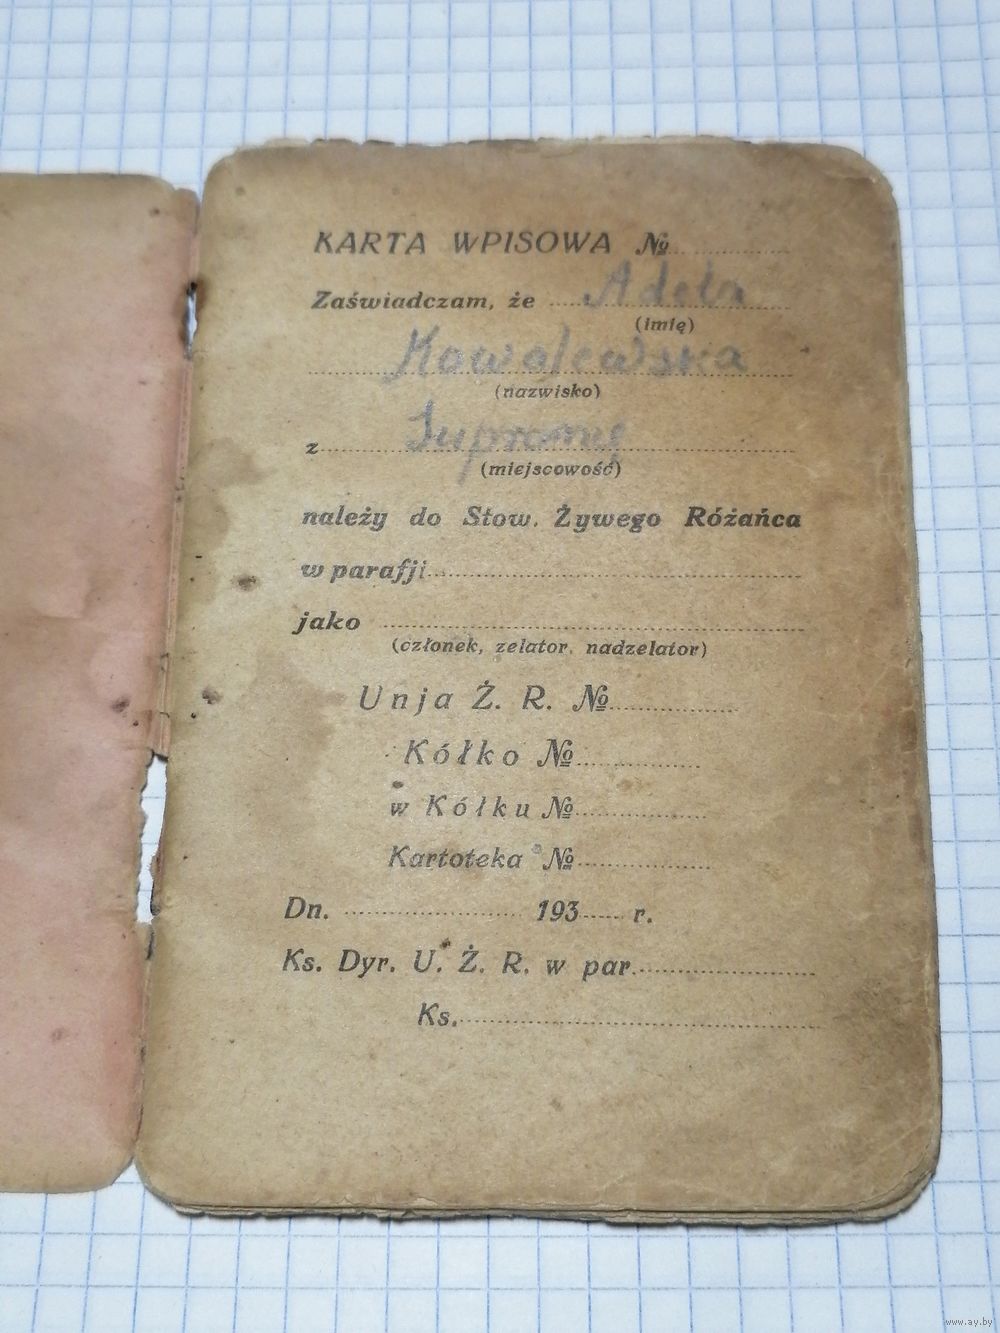 KARTA WPISOWA №
Zaświadczam, że Adela
(imię)
Kowalewska
(nazwisko)
z
(miejscowość)
należy do Stow. Żywego Różańca
w parafji
jako
(członek, zelator, nadzelator)
Unja Ż. R. №
Kółko №
w Kółku №
Kartoteka №
Dn. 193 r.
Ks. Dyr. U. Ż. R. w par.
Ks.
www.ay.by